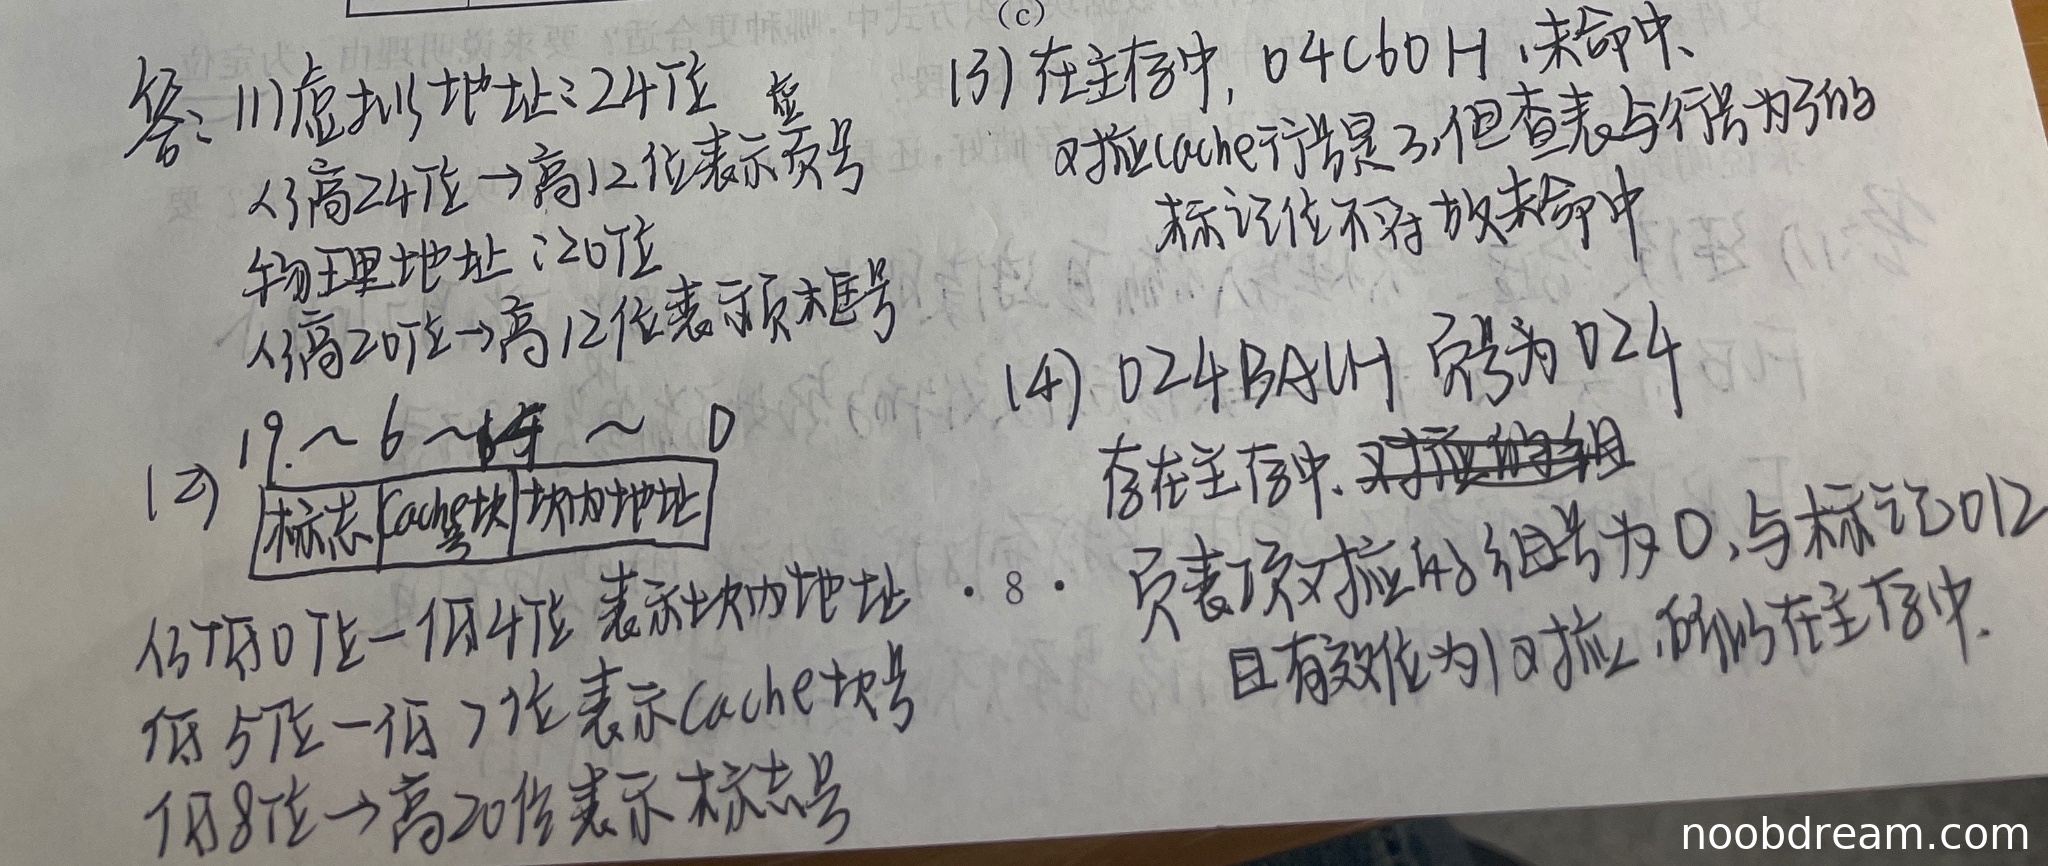 (c)
答：(1)虚拟地址：24位
从高24位→高12位表示虚页号
物理地址：20位
从高20位→高12位表示页框号
(2) 19. ～ 6 ～ ～ 0
标志 Cache块号 块内地址
从低0位－低4位 表示块内地址
低5位－低7位 表示Cache块号
低8位→高20位表示标志号
(3) 在主存中, 04C60H, 未命中、
对应cache行号是3, 但查表与行号为3的
标记位不符 故未命中
(4) 024BACH 页号为024
存在主存中、对应的组
页表项对应的组号为0, 与标记012
且有效位为1对应, 所以在主存中.
· 8 ·
noobdream.com